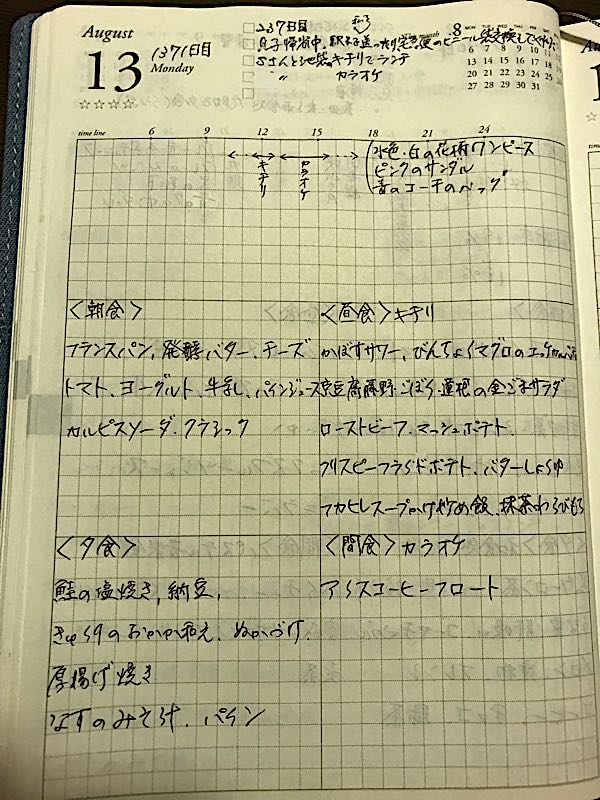 August
13
Monday
1371日目
☆☆☆☆
237日目
息子帰省中、駅まで送ったり宅急便のビニール袋交換してくれた
Sさんと池袋キチリでランチ
〃 カラオケ
8
MON TUE WED THU FRI
6 7 8 9 10
13 14 15 16 17
20 21 22 23 24
27 28 29 30 31
time line 6 9 12 15 18 21 24
キチリ
カラオケ
水色・白の花柄ワンピース
ピンクのサンダル
青のコーチのバッグ
〈朝食〉
フランスパン、発酵バター、チーズ
トマト、ヨーグルト、牛乳、パインジュース
カルピスソーダ・クラシック
〈昼食〉キチリ
かぼすサワー、びんちょうマグロの
京豆腐藤野、ごぼう・蓮根の金ごまサラダ
ローストビーフ、マッシュポテト、
クリスピーフライドポテト、バターしょうゆ
フカヒレスープかけ炒め飯、抹茶わらびもち
〈夕食〉
鮭の塩焼き、納豆、
きゅうりのおかか和え、ぬかづけ、
厚揚げ焼き
なすのみそ汁、パイン
〈間食〉カラオケ
アイスコーヒーフロート